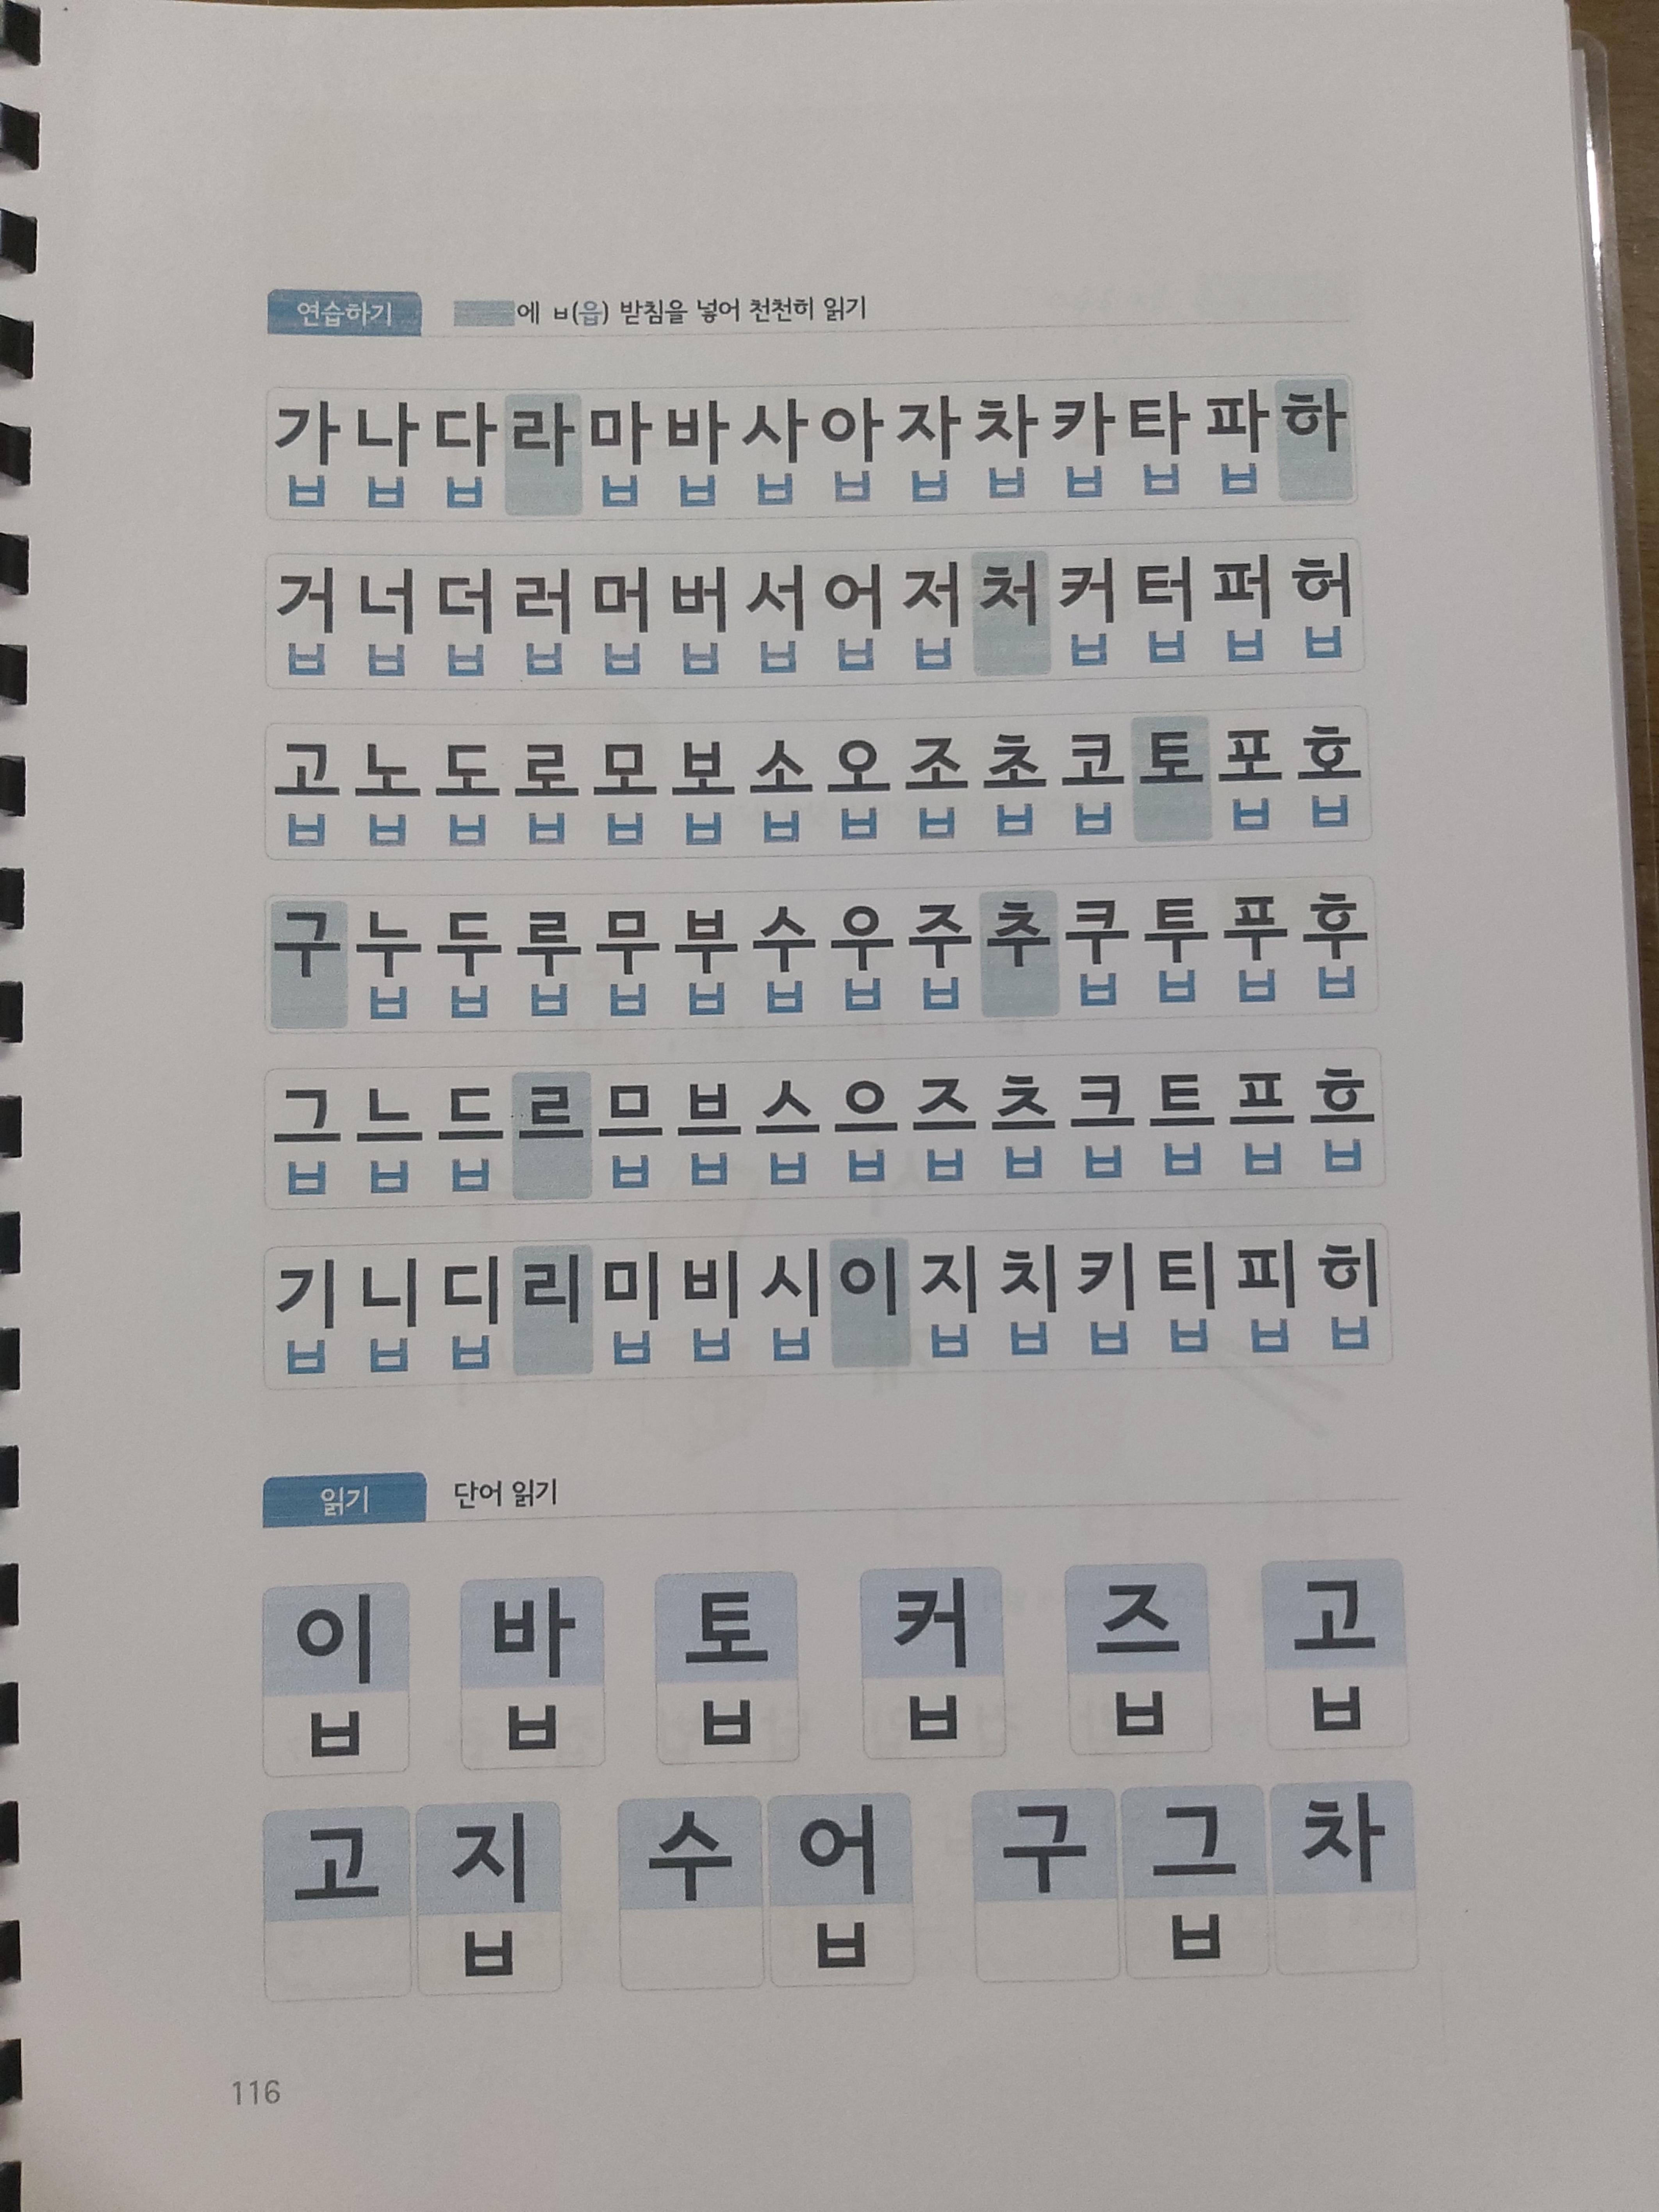 연습하기 에 ㅂ(읍) 받침을 넣어 천천히 읽기
가 나 다 라 마 바 사 아 자 차 카 타 파 하
ㅂ ㅂ ㅂ ㅂ ㅂ ㅂ ㅂ ㅂ ㅂ ㅂ ㅂ ㅂ
거 너 더 러 머 버 서 어 저 처 커 터 퍼 허
ㅂ ㅂ ㅂ ㅂ ㅂ ㅂ ㅂ ㅂ ㅂ ㅂ ㅂ ㅂ ㅂ
고 노 도 로 모 보 소 오 조 초 코 토 포 호
ㅂ ㅂ ㅂ ㅂ ㅂ ㅂ ㅂ ㅂ ㅂ ㅂ ㅂ ㅂ ㅂ
구 누 두 루 무 부 수 우 주 추 쿠 투 푸 후
ㅂ ㅂ ㅂ ㅂ ㅂ ㅂ ㅂ ㅂ ㅂ ㅂ ㅂ ㅂ
그 느 드 르 므 브 스 으 즈 츠 크 트 프 흐
ㅂ ㅂ ㅂ ㅂ ㅂ ㅂ ㅂ ㅂ ㅂ ㅂ ㅂ ㅂ ㅂ
기 니 디 리 미 비 시 이 지 치 키 티 피 히
ㅂ ㅂ ㅂ ㅂ ㅂ ㅂ ㅂ ㅂ ㅂ ㅂ ㅂ ㅂ
읽기 단어 읽기
이 바 토 커 즈 고
ㅂ ㅂ ㅂ ㅂ ㅂ ㅂ
고 지 수 어 구 그 차
ㅂ ㅂ ㅂ
116